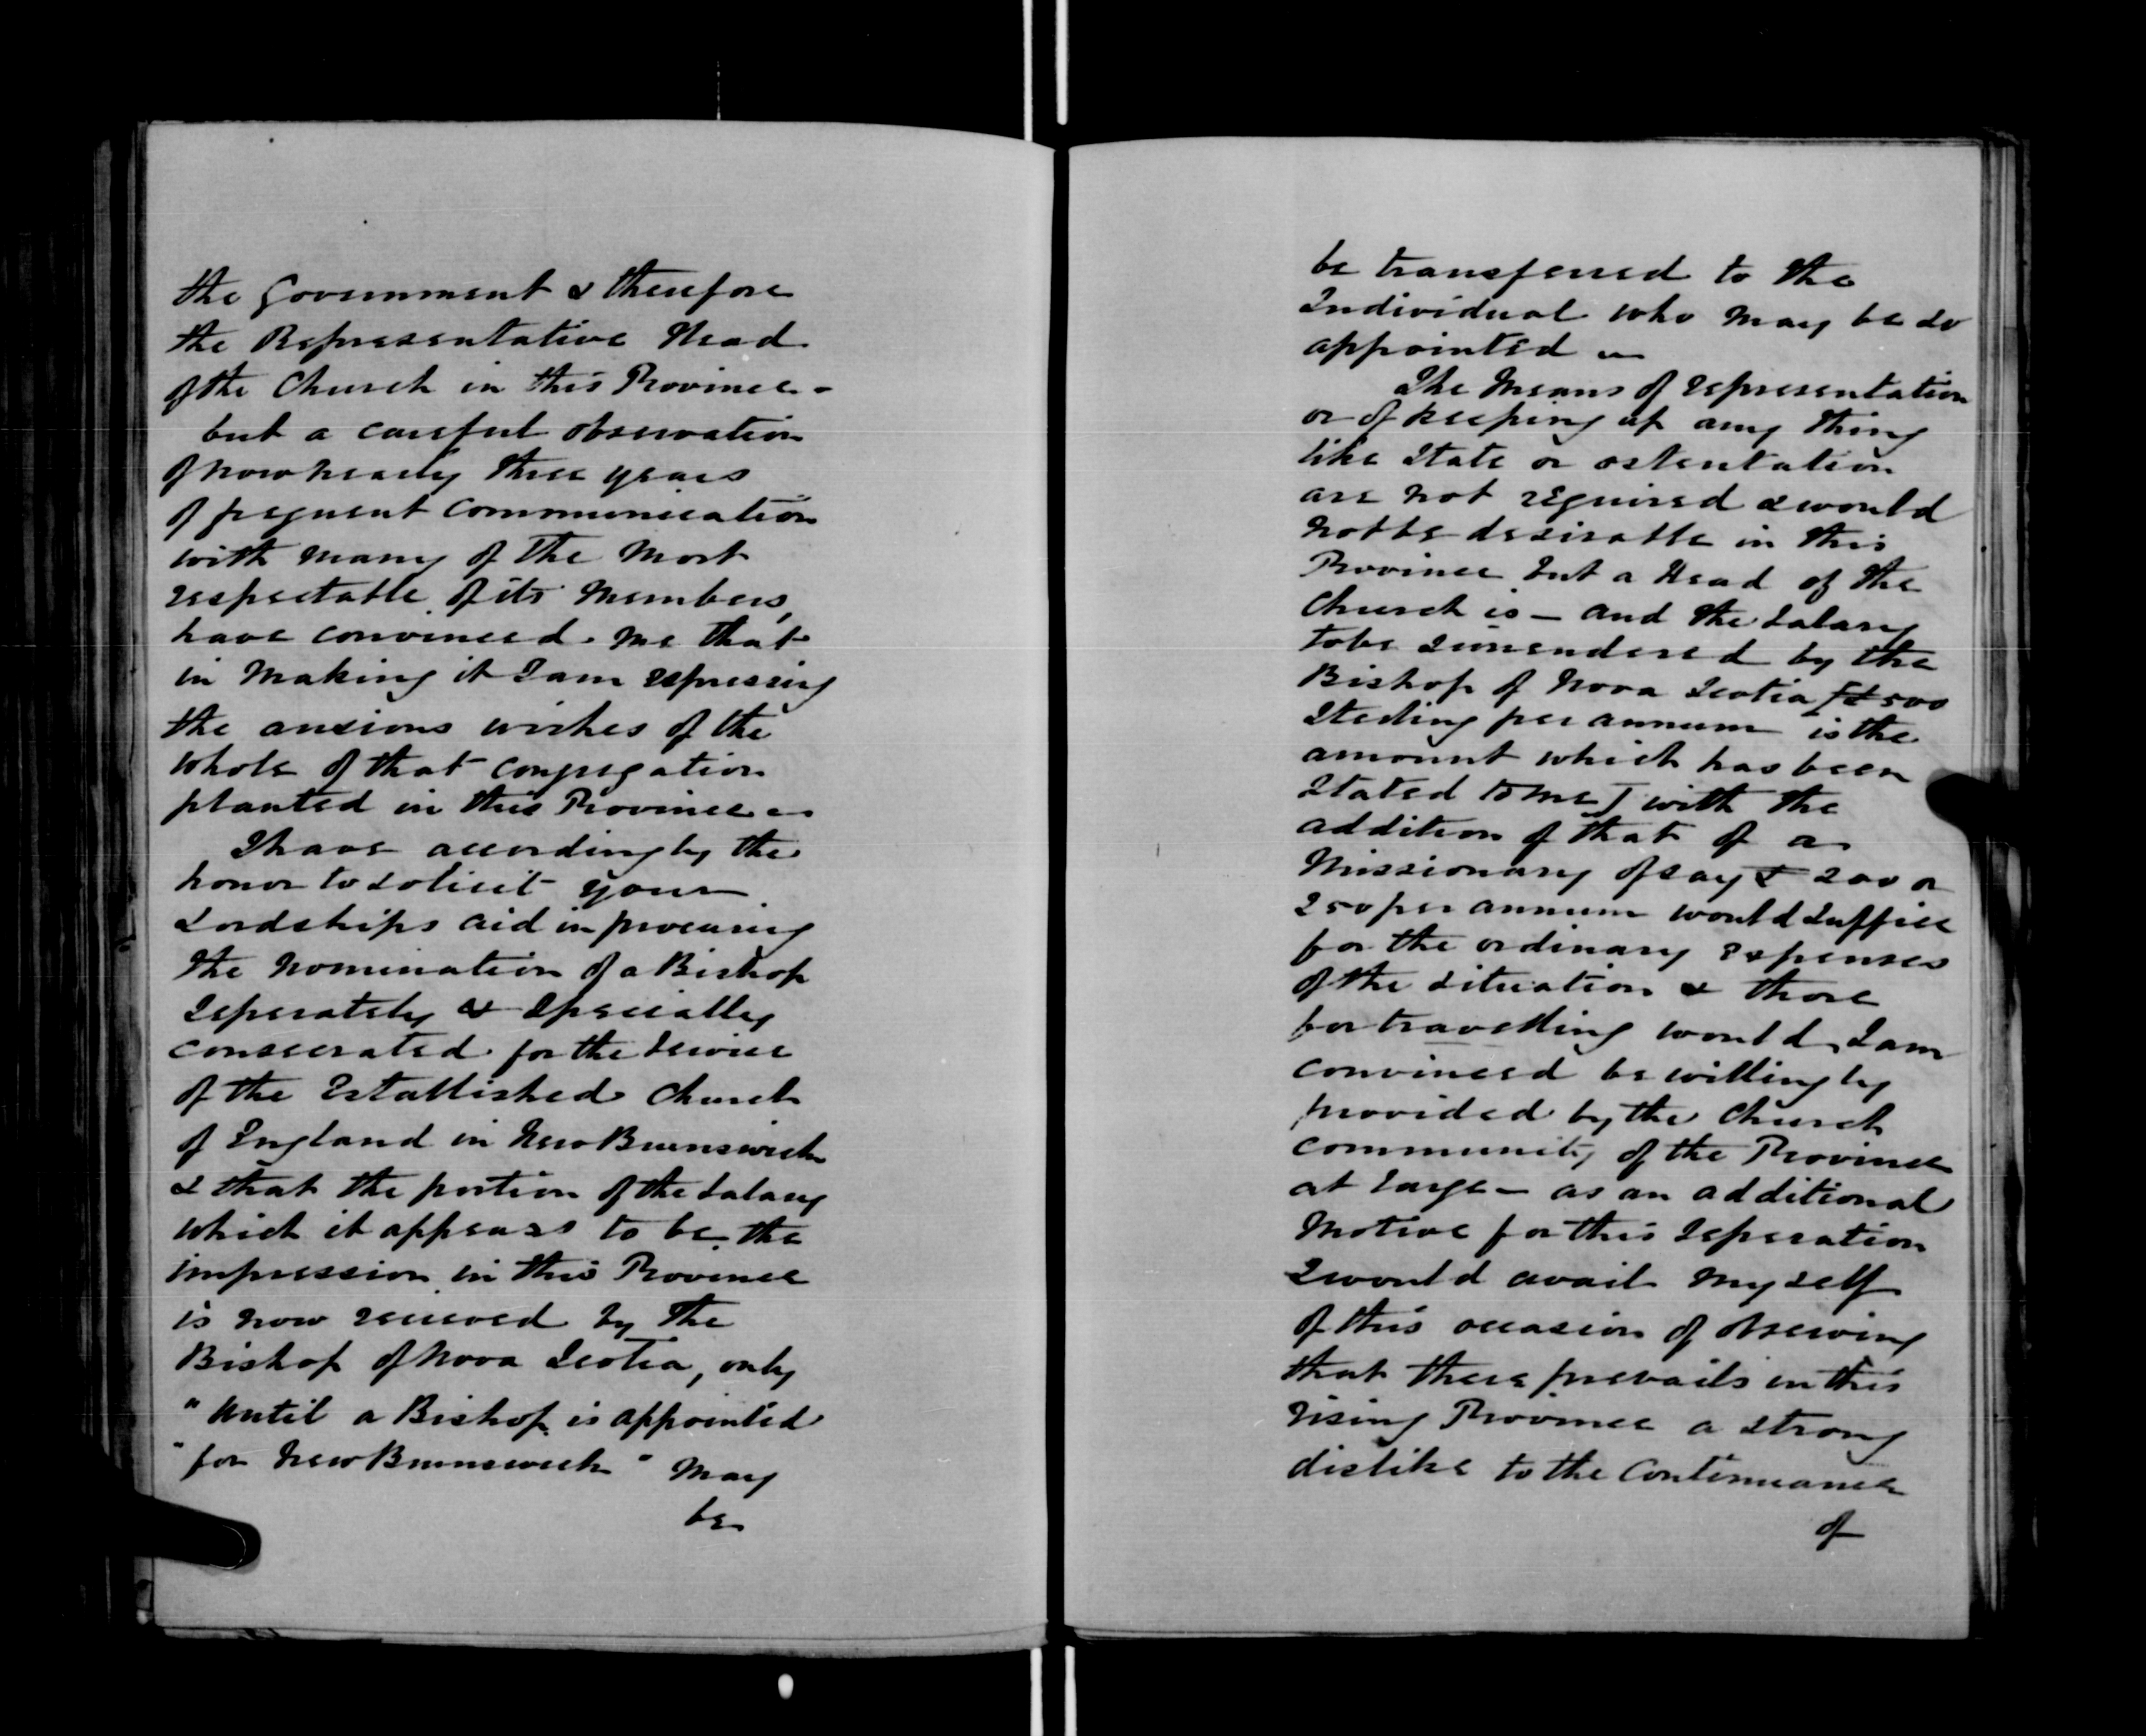 the Government & therefore
the Representative Head
of the Church in this Province -
but a careful observation
of now nearly three years
of frequent Communication
with many of the most
respectable of its Members,
have convinced me that
in making it I am expressing
the anxious wishes of the
whole of that congregation
planted in this Province
I have accordingly the
honor to solicit your
Lordships aid in procuring
the nomination of a Bishop
Seperately & Specially
consecrated for the Service
of the Established Church
of England in New Brunswick
& that the portion of the Salary
which it appears to be the
impression in this Province
is now received by the
Bishop of Nova Scotia, only
"until a Bishop is appointed
"for New Brunswick" May
be
be transferred to the
Individual who may be so
appointed
The Means of representation
or of keeping up any thing
like State or ostentation
are not required & would
not be desirable in this
Province but a Head of the
Church is - and the Salary
to be surrendered by the
Bishop of Nova Scotia [£500
Sterling per annum is the
amount which has been
Stated to me] with the
addition of that of a
Missionary of say £200 or
250 per annum would Suffice
for the ordinary expenses
of the situation & those
for travelling would, I am
convinced be willingly
provided by the Church
community of the Province
at large - as an additional
Motive for this Seperation
I would avail myself
of this occasion of observing
that there prevails in this
rising Province a strong
dislike to the Continuance
of